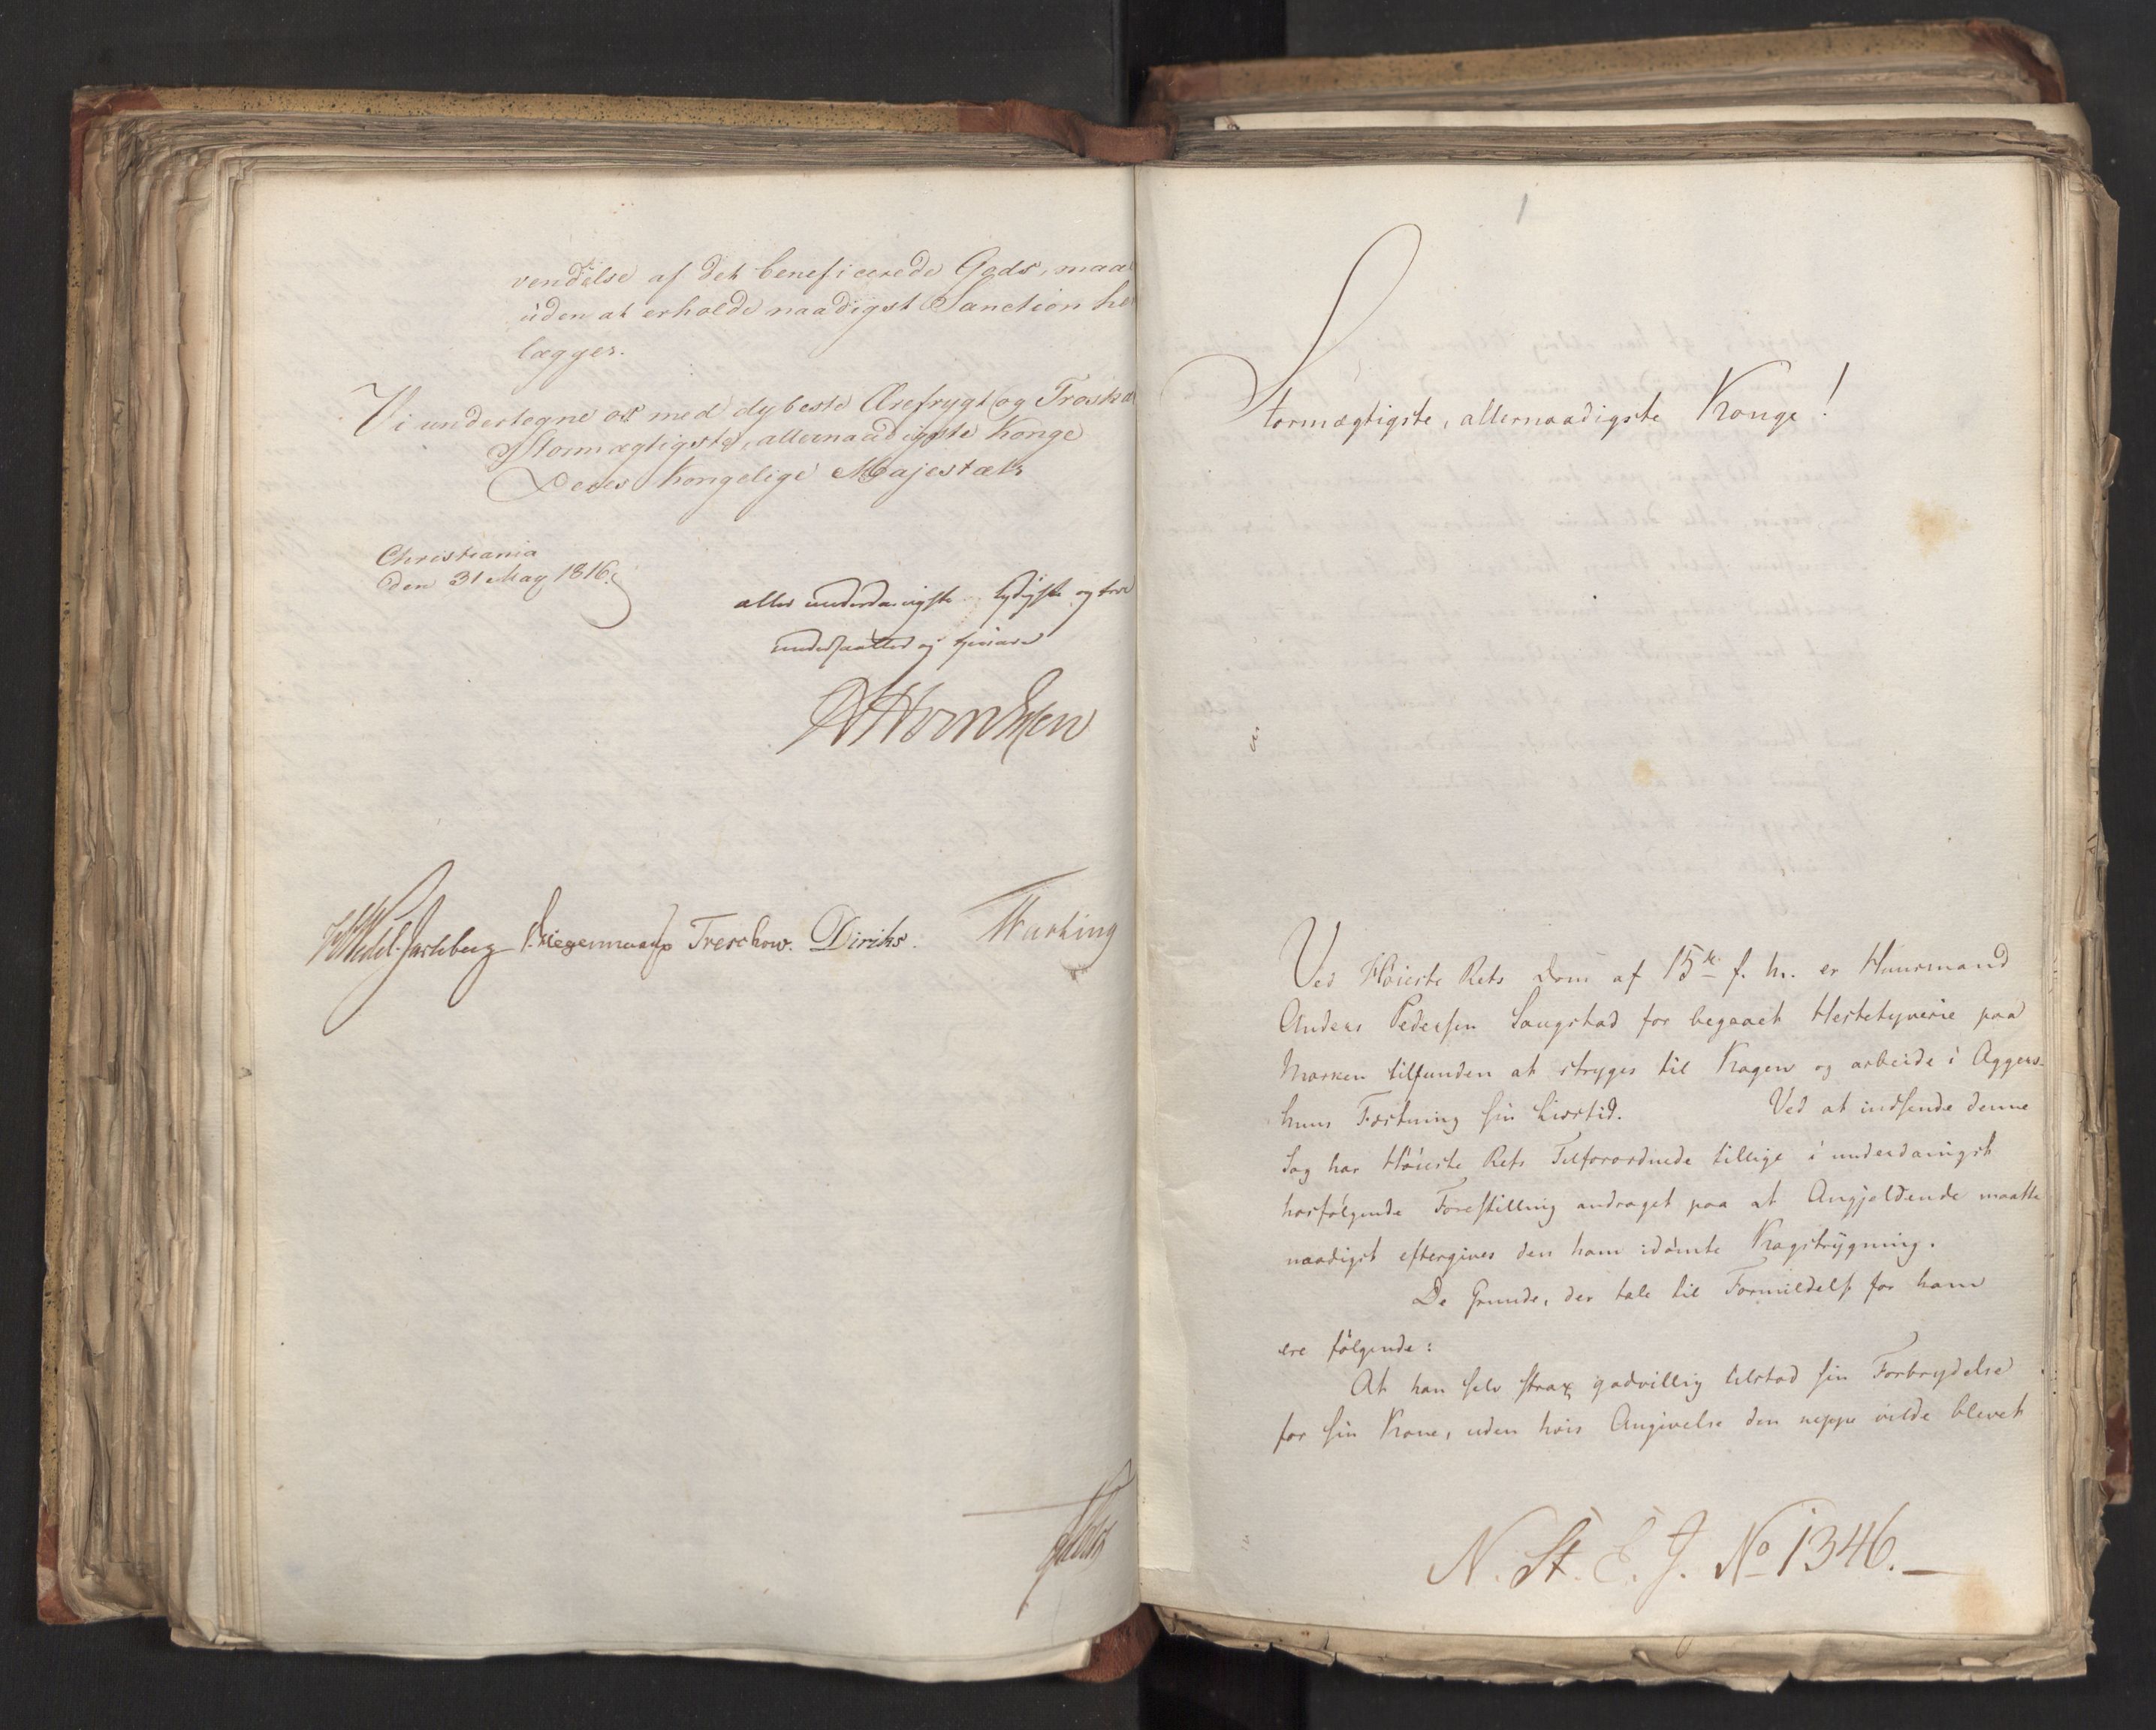 vendelse af det beneficerede Gods, maa
uden at erholde naadigst Sanction he
lægges.
Vi undertegne os med dybeste Ærefrygt og Troska
Stormægtigste, allernaadigste Konge
Deres Kongelige Majestæts
Christiania
den 31 May 1816.
allerunderdanigste lydigste og troe
undersaatter og tjenere
Wedel-Jarlsberg Krieger Treschow. Diriks.
1
Stormægtigste, allernaadigste Konge!
Ved Høieste Rets Dom af 15de f. M. er Huusmand
Anders Pedersen Saugstad for begaaet Hestetyverie paa
Marken tilfunden at stryges til Kagen og arbeide i Aggers-
huus Fæstning sin Livstid. Ved at indsende denne
Sag har Høieste Rets Tilforordnede tillige i underdanigst
hosfølgende Forestilling andraget paa at Angjeldende maatte
naadigst eftergives den ham idømte Kagstrygning.
De Grunde, der tale til Formildelse for ham
ere følgende:
At han selv strax godvillig tilstod sin Forbrydelse
for sin Kone, uden hvis Angivelse den neppe vilde blevet
N. St. E. J. No 1346.